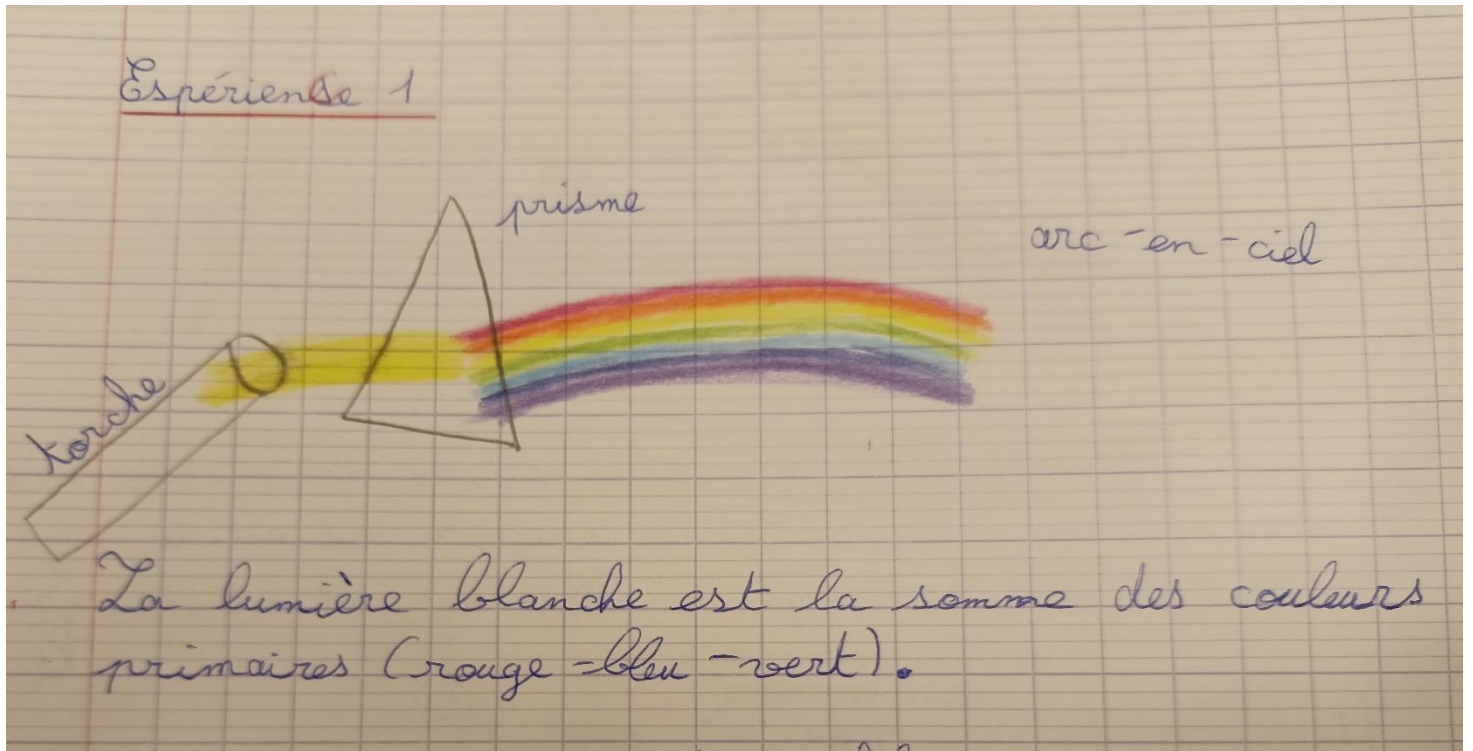 Espérience 1
prisme
arc-en-ciel
torche
La lumière blanche est la somme des couleurs
primaires (rouge-bleu-vert).